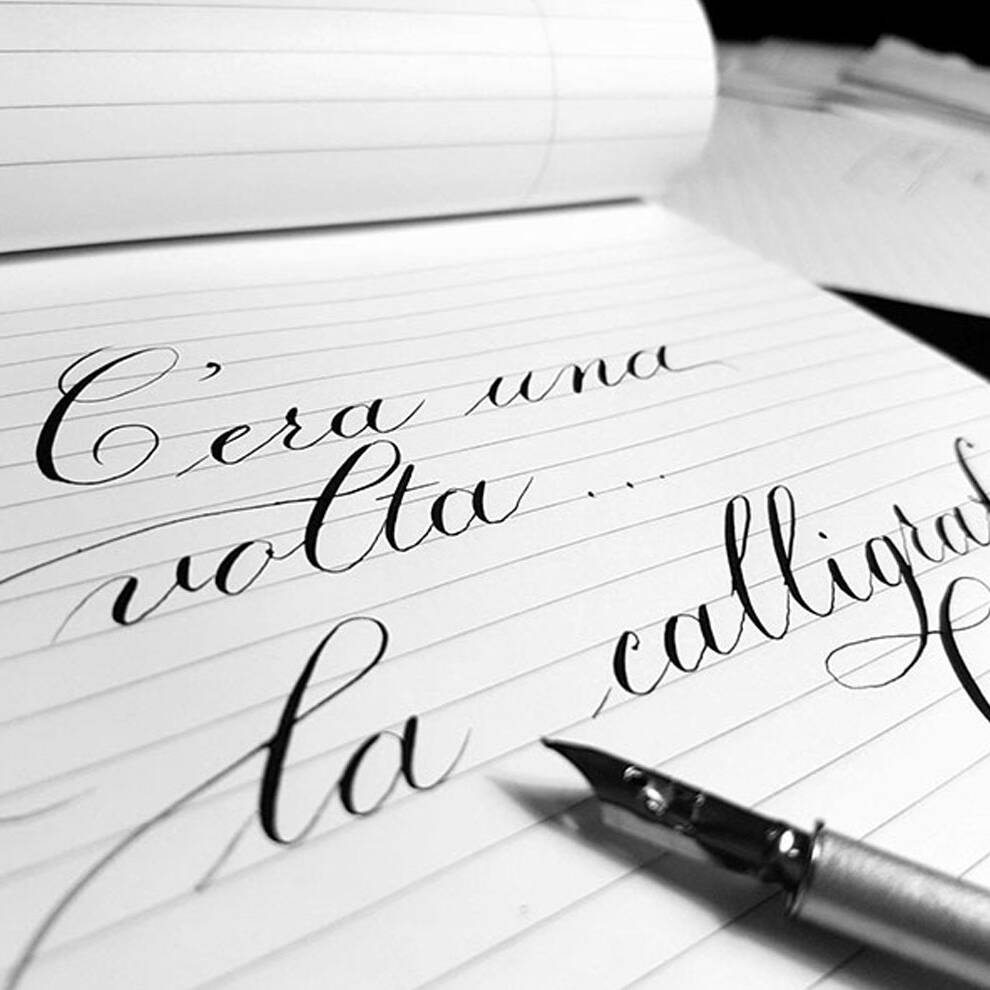 C'era una
volta ...
la calligraf